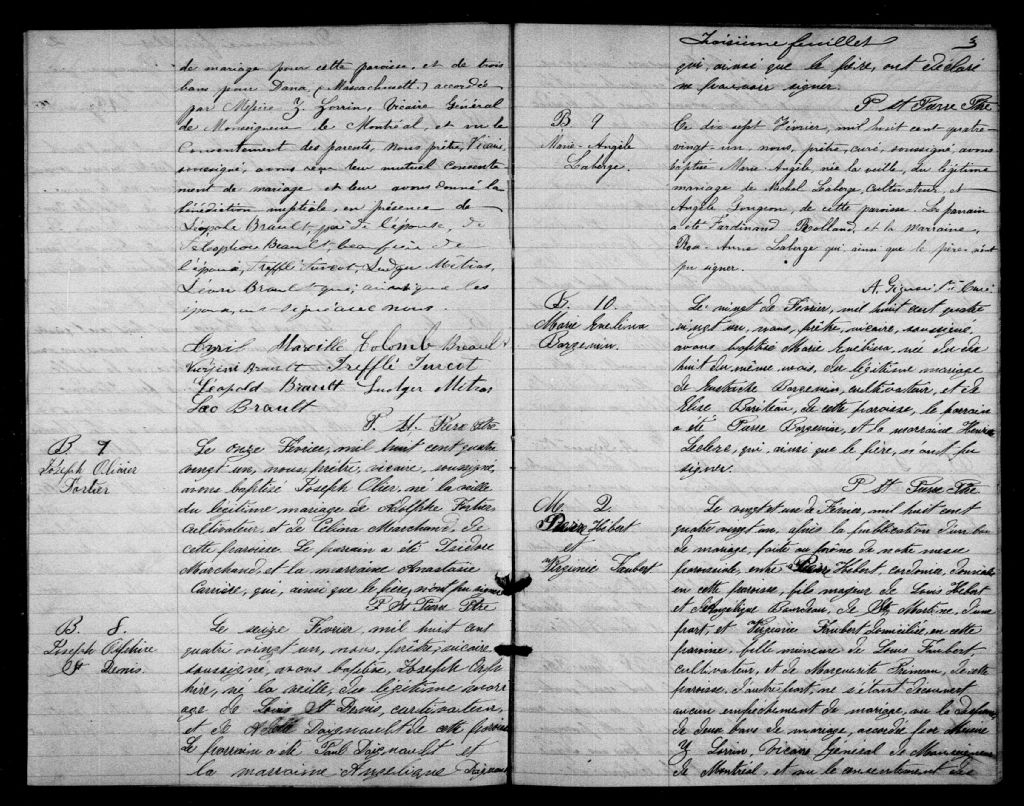 de mariage pour cette paroisse, et de trois
bans pour Dana, (Massachusett) accordée
par Messire Z. Lorrin, Vicaire Général
de Monseigneur de Montréal, et vu le
Consentement des parents, Nous prêtre, Vicaire,
soussigné, avons reçu leur mutuel consente-
ment de mariage et leur avons donné la
bénédiction nuptiale, en présence de
Léopold Brault, père de l'épouse, de
Brault, beau frère de
l'épouse, Trefflé Turcot, Ludger Métras,
Léon Brault qui, ainsi que les
époux, ont signé avec nous.
Cyril Marcille Colomb Breault
Virginie Brault Trefflé Turcot
Léopold Brault Ludger Métras
Leo Brault
P. St. Pierre Ptre
B. 7
Joseph Olivier
Fortier
Le onze Février, mil huit cent quatre
vingt un, nous, prêtre, vicaire, soussigné,
avons baptisé Joseph Olier, né la veille
du légitime mariage de Adolphe Fortier
cultivateur, et de Célina Marchand, de
cette paroisse. Le parrain a été Isidore
Marchand, et la marraine Anastasie
Carrière, qui, ainsi que le père, n'ont pu signer
P. St Pierre Ptre
B. 8.
Joseph Orphire
St Denis
Le seize Février, mil huit cent
quatre vingt un, nous, prêtre, vicaire,
soussigné, avons baptisé, Joseph Orph
hire, né la veille, du légitime mari
age de Louis St Denis, cultivateur,
et de Adele Daignault de cette paroisse
Le parrain a été Paul Daignault et
la marraine Angelique Daignault
Troisième feuillet 3
qui, ainsi que le père, ont déclaré
ne pouvoir signer.
P. St Pierre Ptre
B 9
Marie-Angèle
Laberge.
Ce dix sept Février, mil huit cent quatre-
vingt-un, nous, prêtre, curé, soussigné, avons
baptisé Marie Angèle, née la veille, du légitime
mariage de Michel Laberge, cultivateur, et
Angèle Gougeon, de cette paroisse. Le parrain
a été Ferdinand Rolland, et la marraine,
Rose-Anne Laberge qui, ainsi que le père, n'ont
pu signer.
A. Ptre Curé
B. 10.
Marie Enelina
Bargenin.
Le vingt de Février, mil huit cent quatre
vingt un, nous, prêtre, vicaire, soussigné,
avons baptisé Marie Enelina, née du dix
huit du même mois, du légitime mariage
de Eustache Bargenin, cultivateur, et de
Elise Bariteau, de cette paroisse, le parrain
a été Pierre Bargenin, et la marraine Henria
Leclerc, qui, ainsi que le père, n'ont pu
signer.
P. St Pierre Ptre
M. 2.
Pierre Hébert
et
Virginie Faubert
Le vingt et un de Fevrier, mil huit cent
quatre vingt un, après la publication d'un ban
de mariage, faite au prône de notre messe
paroissiale, entre Pierre Hébert, cordonnier, domicilié
en cette paroisse, fils majeur de Louis Hébert
et de Angelique Bourdeau, de Ste Martine, d'une
part, et Virginie Faubert domiciliée, en cette
paroisse, fille mineure de Louis Faubert
cultivateur, et de Marguerite Primeau de cette
paroisse, d'autre part, ne s'étant découvert
aucun empêchement de mariage, vu la dispense
de deux bans de mariage, accordée par Messire
Z. Lorrin, Vicaire Général de Monseigneur
de Montréal, et vu le consentement des